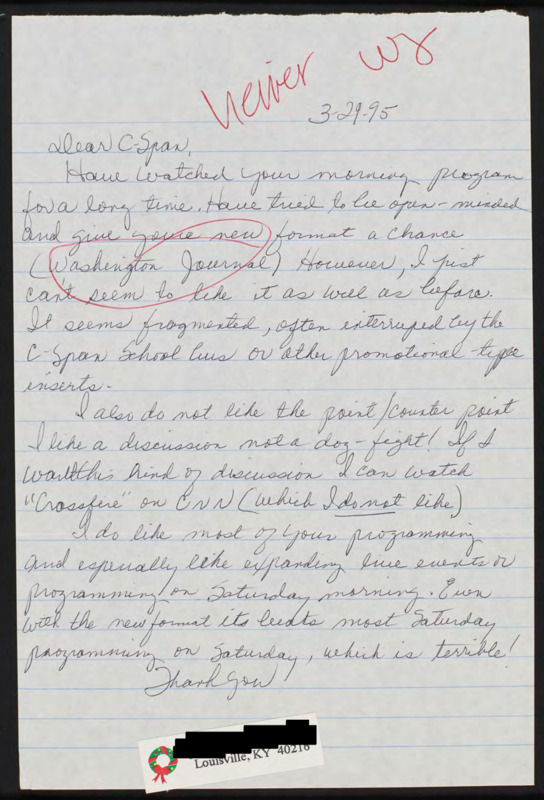 viewer WJ
3-29-95
Dear C-Span,
Have watched your morning program
for a long time. Have tried to be open-minded
and give youre new format a chance
(Washington Journal) However, I just
can't seem to like it as well as before.
It seems fragmented, often interruped by the
C-Span School bus or other promotional-type
inserts.
I also do not like the point/counter point
I like a discussion not a dog-fight! If I
want this kind of discussion I can watch
"Crossfire" on CNN (which I do not like)
I do like most of your programming
and espeually like expanding live events or
programming on Saturday morning. Even
with the new format its beats most Saturday
programming on Saturday, which is terrible!
Thank You
Louisville, KY 40216